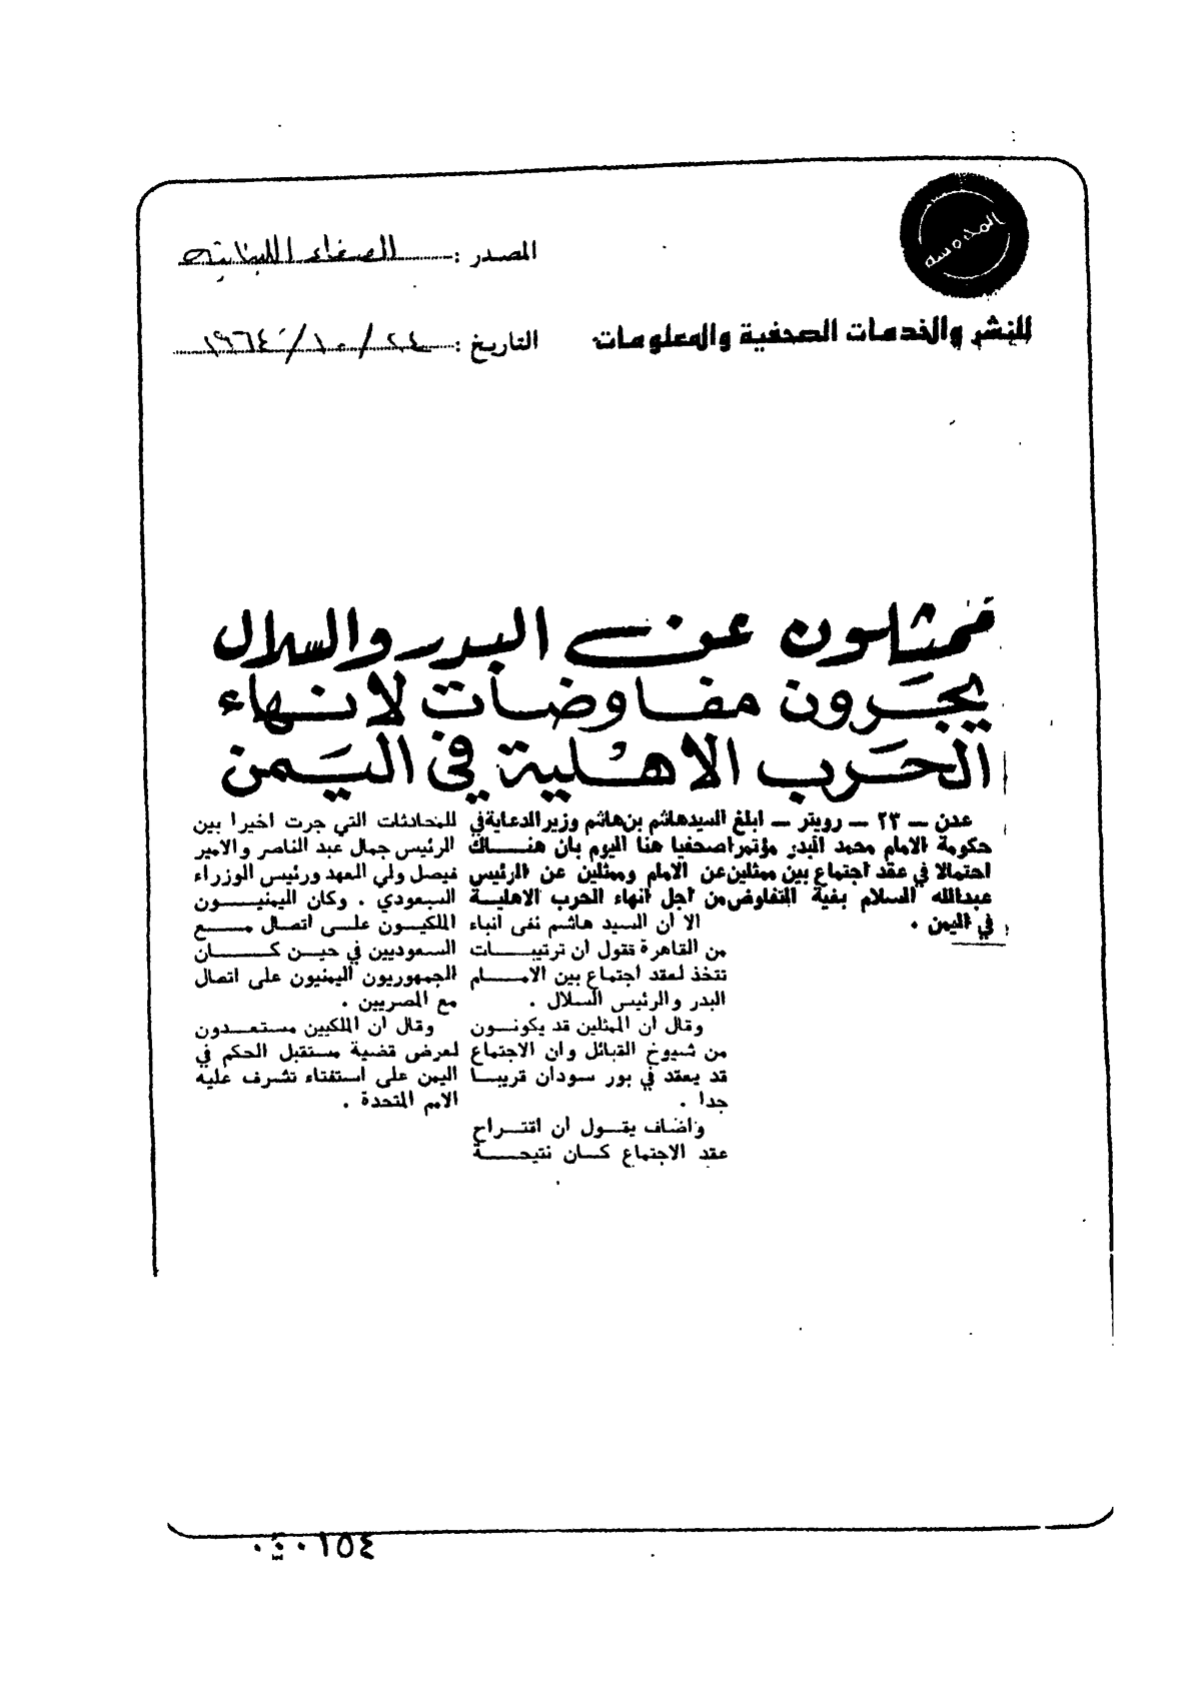 المدوسه
المصدر : الصفاء اللبنانيه
للنشر والخدمات الصحفية والمعلومات
التاريخ : ٢٤ / ١٠ / ١٩٦٤
ممثلون عن البدر والسلال
يجرون مفاوضات لانهاء
الحرب الاهلية في اليمن
عدن – ٢٣ – رويتر – ابلغ السيدهاشم بن هاشم وزير الدعاية في
حكومة الامام محمد البدر مؤتمرا صحفيا هنا اليوم بان هنـــاك
احتمالا في عقد اجتماع بين ممثلين عن الامام وممثلين عن الرئيس
عبدالله السلام بغية التفاوض من اجل انهاء الحرب الاهليـة
في اليمن .
الا ان السيد هاشم نفى انباء
من القاهرة تقول ان ترتيبـــات
تتخذ لعقد اجتماع بين الامـــام
البدر والرئيس السلال .
وقال ان الممثلين قد يكونـــون
من شيوخ القبائل وان الاجتماع
قد يعقد في بور سودان قريبــا
جدا .
واضاف يقــول ان اقتـــراح
عقد الاجتماع كــان نتيجـــة
للمحادثات التي جرت اخيرا بين
الرئيس جمال عبد الناصر والامير
فيصل ولي العهد ورئيس الوزراء
السعودي . وكان اليمنيـــون
الملكيــون علــى اتصــال مـــع
السعوديين في حيــن كـــان
الجمهوريون اليمنيون على اتصال
مع المصريين .
وقال ان الملكيين مستعـــدون
لعرض قضية مستقبل الحكم في
اليمن على استفتاء تشرف عليه
الامم المتحدة .